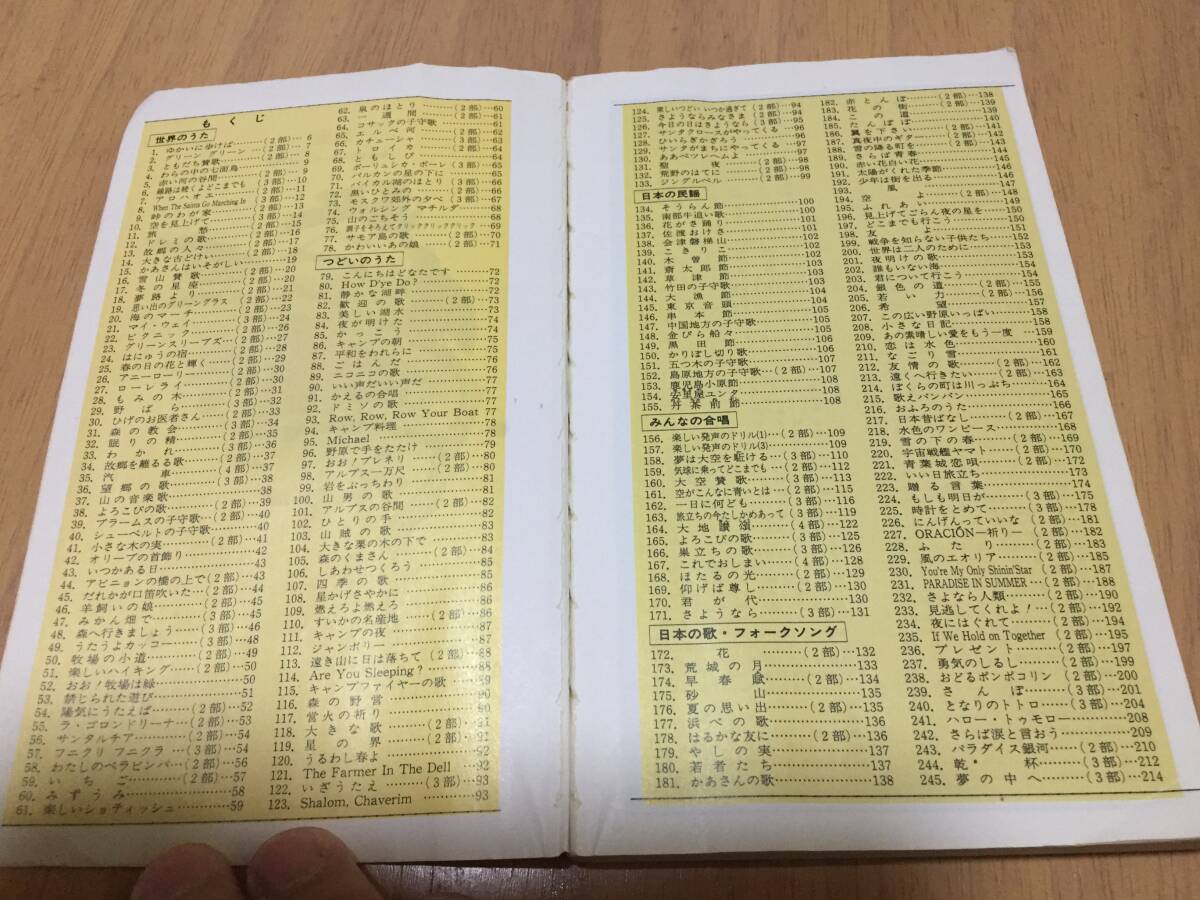 もくじ
世界のうた
1. ゆかいに歩けば……(2部)… 6
2. グリーン グリーン……(2部)… 7
3. ともだち賛歌……(2部)… 8
4. わらの中の七面鳥……(2部)… 9
5. 赤い河の谷間……(2部)… 9
6. 線路は続くよどこまでも (3部)…10
7. アロハオエ……(3部)…11
8. When The Saints Go Marching In (3部)…12
9. 峠のわが家……(3部)…13
10. 空を見上げて……(3部)…14
11. 旅愁……(2部)…15
12. ドレミの歌……(2部)…16
13. 故郷の人々……(2部)…17
14. 大きな古どけい……(2部)…18
15. かあさんはいそがしい……19
16. 雪山賛歌……(2部)…20
17. 冬の星座……(2部)…20
18. 夢路より……(2部)…21
19. 思い出のグリーングラス (2部)…22
20. 海のマーチ……(3部)…23
21. マイ・ウェイ……(2部)…24
22. ピクニック……(2部)…26
23. グリーンスリーブズ…(2部)…27
24. はにゅうの宿……(2部)…28
25. 春の日の花と輝く…(2部)…29
26. アニーローリー……(2部)…30
27. ローレライ……(2部)…31
28. もみの木……(2部)…32
29. 野ばら……(3部)…32
30. ひげのお医者さん…(2部)…33
31. 森の教会……(3部)…34
32. 眠りの精……(2部)…35
33. わかれ……(3部)…36
34. 故郷を離るる歌……(2部)…37
35. 汽車……(4部)…38
36. 望郷の歌……(3部)…38
37. 山の音楽家……(2部)…39
38. よろこびの歌……(2部)…39
39. ブラームスの子守歌…(2部)…40
40. シューベルトの子守歌……40
41. 小さな木の実……(2部)…41
42. オリーブの首飾り……42
43. いつかある日……(2部)…43
44. アビニョンの橋の上で(2部)…43
45. だれかが口笛吹いた…(2部)…44
46. 羊飼いの娘……(2部)…45
47. みかん畑で……(3部)…45
48. 森へ行きましょう…(3部)…46
49. うたうよカッコー…(3部)…48
50. 牧場の小道……(2部)…49
51. 楽しいハイキング…(2部)…50
52. おお!牧場は緑……50
53. 禁じられた遊び……51
54. 陽気にうたえば……(2部)…52
55. ラ・ゴロンドリーナ…(2部)…53
56. サンタルチア……(2部)…54
57. フニクリ フニクラ …(3部)…54
58. わたしのベラビンバ…(2部)…56
59. いちご……(2部)…57
60. みずうみ……58
61. 楽しいショティッシュ……59
62. 泉のほとり……(2部)…60
63. 一週間……(2部)…61
64. コサックの子守歌……61
65. エルベ河……(2部)…62
66. カチューシャ……(3部)…63
67. トロイカ……(2部)…64
68. ともしび……(3部)…65
69. ポーリュシカ・ポーレ (3部)…65
70. バルカンの星の下に……66
71. バイカル湖のほとり (3部)…66
72. 黒いひとみの……(2部)…66
73. モスクワ郊外の夕べ (3部)…67
74. ウォルシング マチルダ……68
75. 山のごちそう……68
76. 調子をそろえてクリッククリッククリック…69
77. サモア島の歌……(2部)…70
78. かわいいあの娘……(2部)…71
つどいのうた
79. こんにちはどなたです……72
80. How D'ye Do?……72
81. 静かな湖畔……72
82. 歓迎の歌……(2部)…73
83. 美しい湖水……73
84. 夜が明けた……74
85. かっこう……(2部)…74
86. キャンプの朝……76
87. 平和をわれらに……75
88. ごはんだ……76
89. ニコニコの歌……76
90. いい声だいい声だ……77
91. かえるの合唱……77
92. ドミソの歌……77
93. Row, Row, Row Your Boat 77
94. キャンプ料理……78
95. Michael……78
96. 野原で手をたたけ……79
97. おお!ブレネリ……(2部)…80
98. アルプス一万尺……(2部)…80
99. 岩をぶっちわり……81
100. 山男の歌……81
101. アルプスの谷間……(2部)…82
102. ひとりの手……82
103. 山賊の歌……83
104. 大きな栗の木の下で……83
105. 森のくまさん……(2部)…84
106. しあわせつくろう……85
107. 四季の歌……85
108. 星かげさやかに……86
109. 燃えろよ燃えろ……86
110. すいかの名産地……(2部)…86
111. キャンプの夜……87
112. ジャンボリー……(2部)…87
113. 遠き山に日は落ちて (2部)…88
114. Are You Sleeping?……88
115. キャンプファイヤーの歌…89
116. 森の野営……90
117. 営火の祈り……90
118. 大きな歌……(2部)…91
119. 星の界……(2部)…91
120. うるわし春よ……92
121. The Farmer In The Dell…92
122. いざうたえ……(3部)…93
123. Shalom, Chaverim……93
124. 楽しいつどい いつか過ぎて (2部)…94
125. さようならみなさま (2部)…94
126. 今日の日はさようなら (3部)…95
127. サンタクロースがやってくる…96
128. ひいらぎかざろう……96
129. サンタがまちにやってくる…96
130. ああベツレヘムよ……97
131. 聖夜……(2部)…98
132. 荒野のはてに……(2部)…98
133. ジングルベル……(2部)…99
日本の民謡
134. そうらん節……100
135. 南部牛追い歌……100
136. 花がさ踊り……101
137. 佐渡おけさ……101
138. 会津磐梯山……102
139. こきりこ……102
140. 木曽節……102
141. 斎太郎節……103
142. 草津節……103
143. 竹田の子守歌……(2部)…103
144. 大漁節……104
145. 東京音頭……104
146. 串本節……104
147. 中国地方の子守歌……105
148. 金ぴら船々……105
149. 黒田節……106
150. かりぼし切り歌……106
151. 五つ木の子守歌……107
152. 島原地方の子守歌…(2部)…107
153. 鹿児島小原節……108
154. 安里屋ユンタ……108
155. 丹茶前節……108
みんなの合唱
156. 楽しい発声のドリル(1)…(2部)…109
157. 楽しい発声のドリル(3)……109
158. 夢は大空を駈ける…(3部)…110
159. 気球に乗ってどこまでも…(2部)…112
160. 大空賛歌……(3部)…111
161. 空がこんなに青いとは…(2部)…115
162. 一日に何ども……(3部)…116
163. 旅立ちの今たしかめあって (3部)…119
164. 大地讃頌……(4部)…122
165. よろこびの歌……(3部)…125
166. 巣立ちの歌……(3部)…126
167. これでおしまい……(4部)…128
168. ほたるの光……(2部)…129
169. 仰げば尊し……(2部)…130
170. 君が代……130
171. さようなら……(3部)…131
日本の歌・フォークソング
172. 花……(2部)…132
173. 荒城の月……133
174. 早春賦……(2部)…134
175. 砂山……135
176. 夏の思い出……(2部)…135
177. 浜べの歌……136
178. はるかな友に……(2部)…136
179. やしの実……137
180. 若者たち……137
181. かあさんの歌……(3部)…138
182. 赤とんぼ……(2部)…138
183. 花の街……139
184. この道……139
185. たんぽぽ……140
186. 翼を下さい……(2部)…141
187. 真夜中のギター……(2部)…142
188. 雪の降る町を……(2部)…143
189. さらば青春……144
190. 赤い花白い花……145
191. 太陽がくれた季節……146
192. 少年は街を出る……146
193. 風……
194. 空よ……(2部)…148
195. ふれあい……149
196. 見上げてごらん夜の星を……150
197. どこまでも行こう……150
198. 友よ……151
199. 戦争を知らない子供たち…152
200. 世界は二人のために……153
201. 夜明けの歌……153
202. 誰もいない海……154
203. 君について行こう……154
204. 銀色の道……(2部)…155
205. 若い力……(2部)…156
206. 希望……157
207. この広い野原いっぱい……158
208. 小さな日記……158
209. あの素晴しい愛をもう一度…159
210. 恋は水色……160
211. なごり雪……161
212. 友情の歌……(2部)…162
213. 遠くへ行きたい……(2部)…163
214. ぼくらの町は川っぷち……164
215. 歌えバンバン……165
216. おふろのうた……166
217. 日本昔ばなし……(2部)…167
218. 水色のワンピース……168
219. 雪の下の春……(2部)…169
220. 宇宙戦艦ヤマト……(2部)…170
221. 青葉城恋唄……(2部)…172
222. いい日旅立ち……173
223. 贈る言葉……174
224. もしも明日が……(3部)…175
225. 時計をとめて……(3部)…178
226. にんげんっていいな…(2部)…181
227. ORACIÓN—祈り—…(2部)…182
228. ふたり……(2部)…183
229. 風のエオリア……(2部)…185
230. You're My Only Shinin'Star (2部)…187
231. PARADISE IN SUMMER …(2部)…188
232. さよなら人類……(2部)…190
233. 見逃してくれよ!…(2部)…192
234. 夜にはぐれて……(2部)…194
235. If We Hold on Together (2部)…195
236. プレゼント……(2部)…197
237. 勇気のしるし……(2部)…199
238. おどるポンポコリン…(2部)…200
239. さんぽ……(3部)…201
240. となりのトトロ……(3部)…204
241. ハロー・トゥモロー……208
242. さらば涙と言おう……209
243. パラダイス銀河……(2部)…210
244. 乾杯……(3部)…212
245. 夢の中へ……(3部)…214